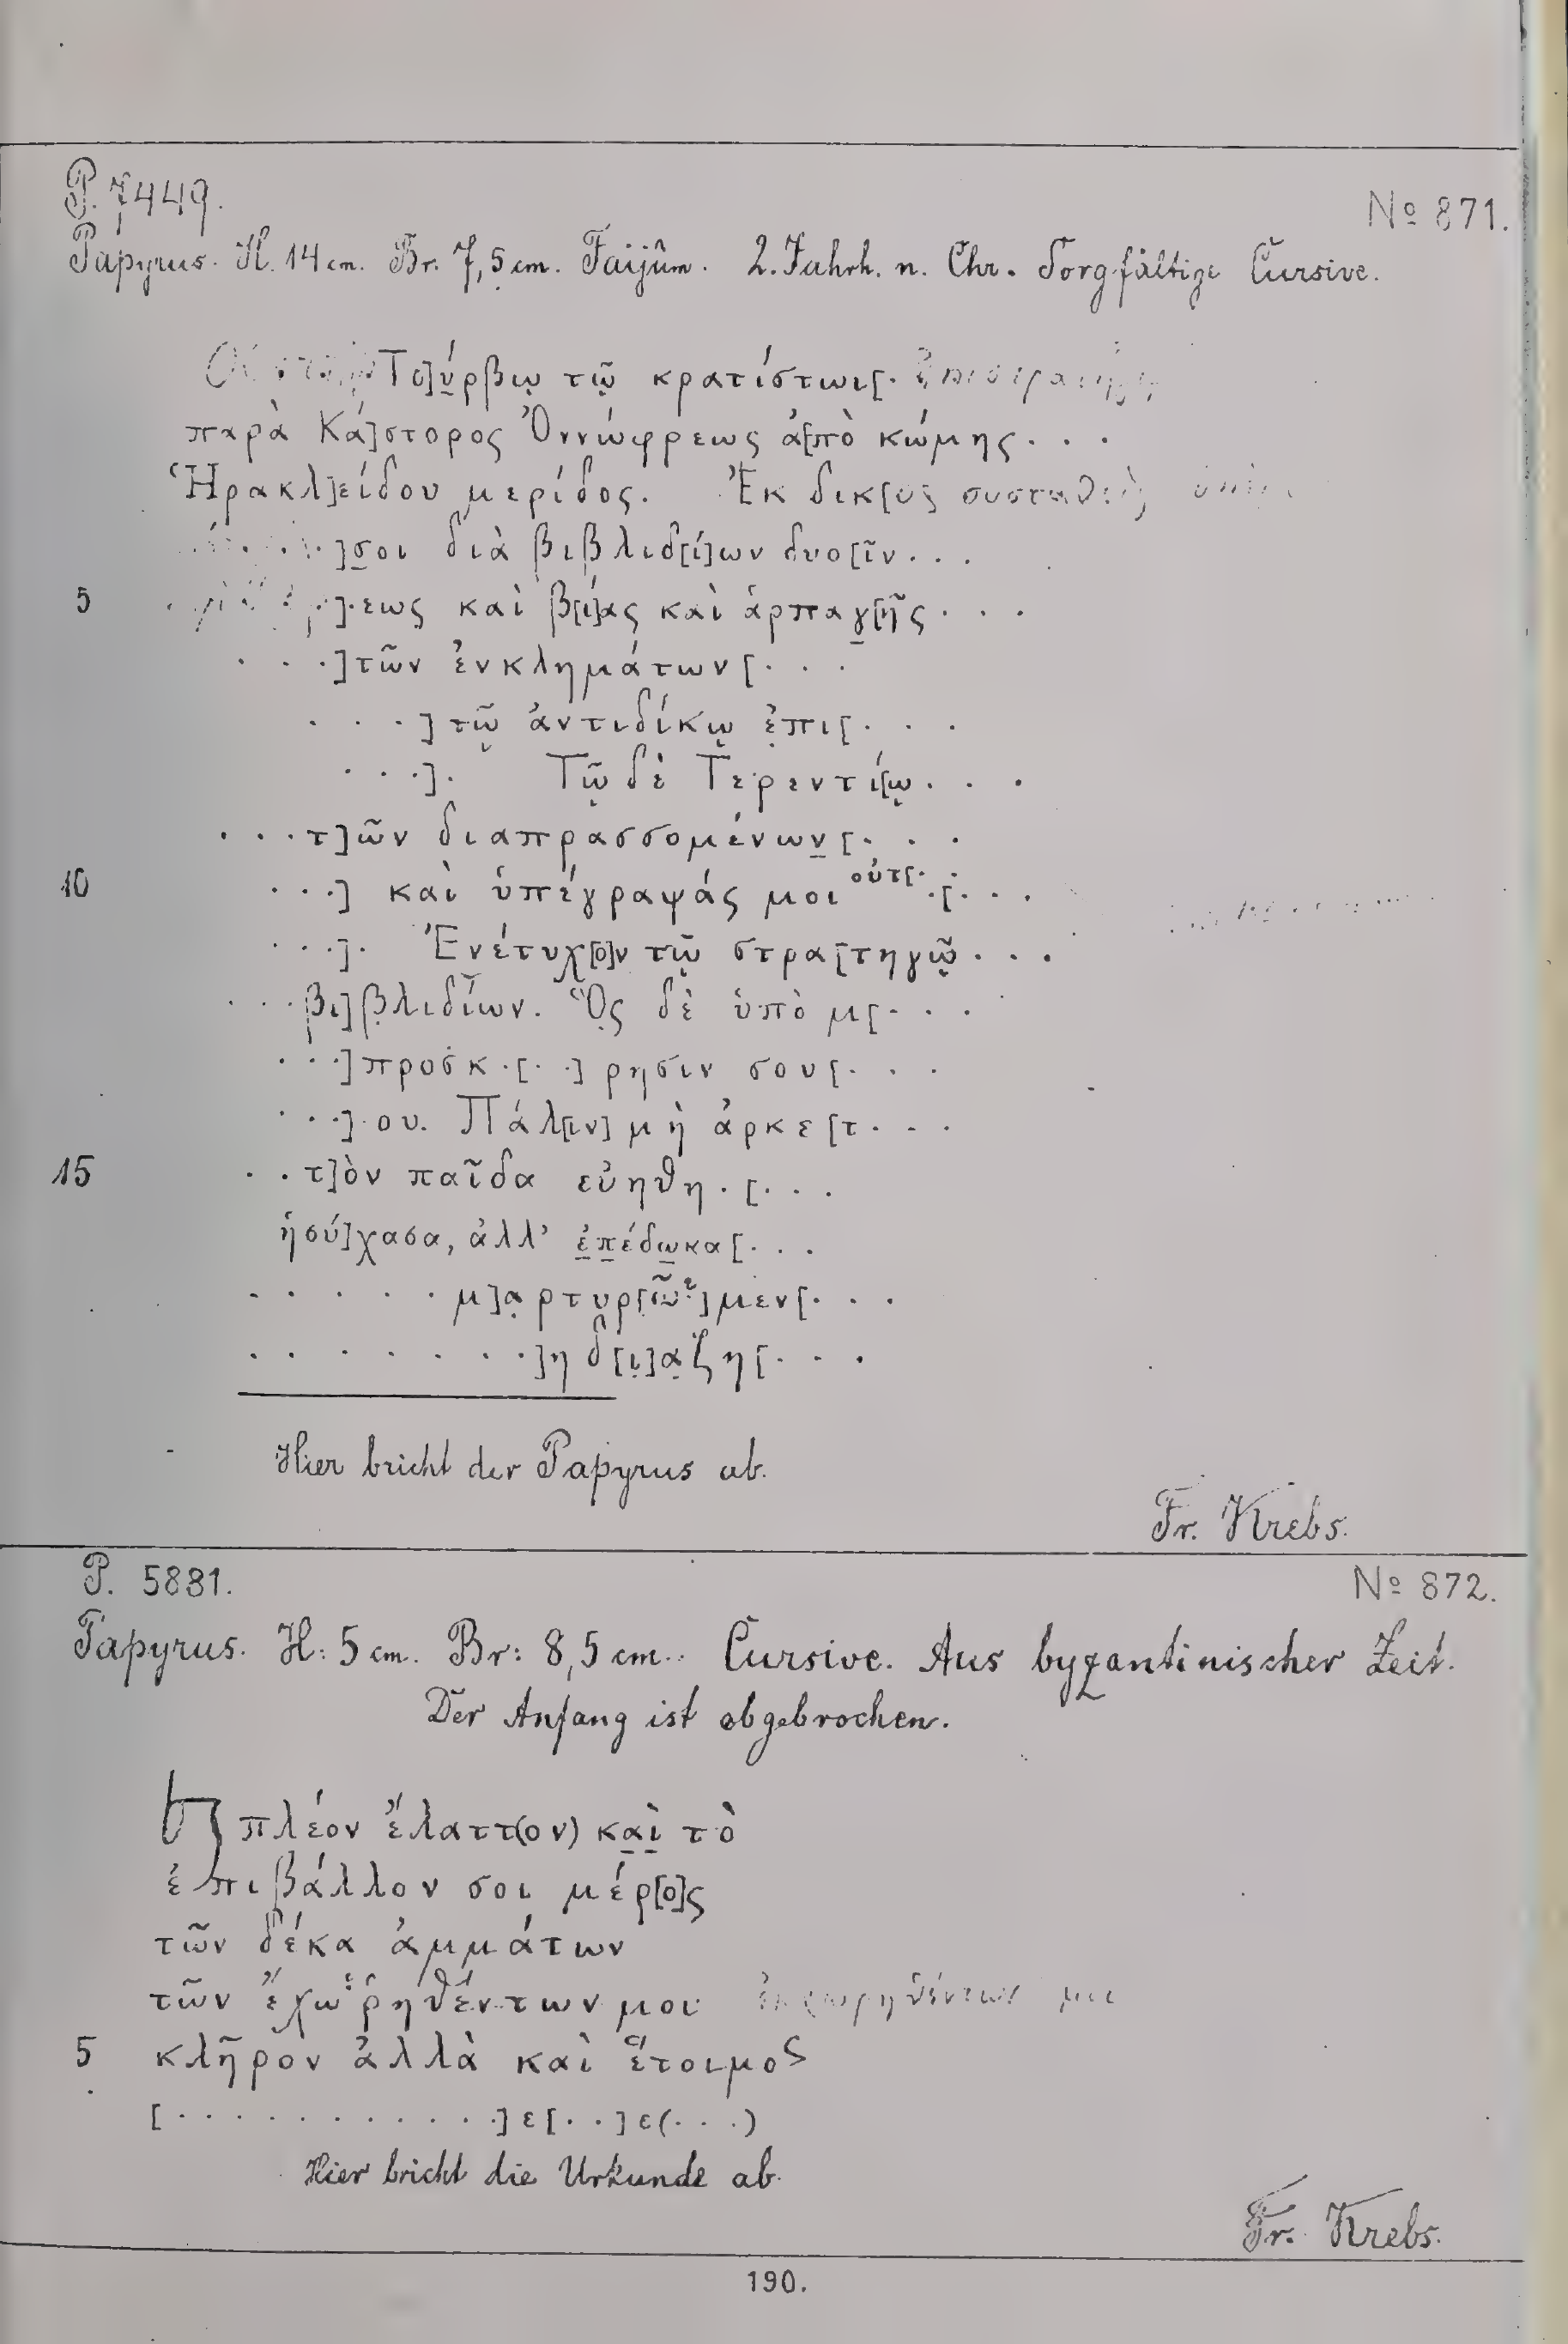 P. 7449.
No 871.
Papyrus. H. 14 cm. Br. 7,5 cm. Faijûm. 2. Jahrh. n. Chr. Sorgfältige Cursive.
Το]ύ̣ρβῳ τῷ κρατίστωι[·
παρὰ Κά]στορος Ὀννώφρεως ἀ[πὸ κώμης . . .
Ἡρακλ]είδου μερίδος. Ἐκ δικ[
]σ̣οι διὰ βιβλιδ[ί]ων δυο[ῖν . . .
5 ]·εως καὶ β[ί]ας καὶ ἁρπαγ̣[ῆς . . .
. . .]τῶν ἐνκλημάτων[. . .
. . .] τῷ ἀντιδίκῳ ἐ̣πι[. . .
. . .]. Τῷ δὲ Τερεντί[ῳ . . .
. . . τ]ῶν διαπρασσομένων̣[. . .
10 . . .] καὶ ὑπέγραψάς μοι οὑτ[. .[. . .
. . .]. Ἐνέτυχ[ο]ν τῷ στρα[τηγῷ . . .
. . . βι]β̣λιδίων. Ὃς δὲ ὑπὸ μ[. . .
. . .]προσκ.[. .]ρησιν σου[. . .
. . .]ου. Πάλ[ιν] μὴ ἀρκε[τ . . .
15 . . τ]ὸν παῖδα εὐηθη.[. . .
ἡσύ]χασα, ἀλλ’ ἐ̣π̣έδω̣κα[. . .
. . . . . μ]α̣ρτυρ[ῶ?]μεν[. . .
. . . . . . . .]η δ[ι̣]α̣ζη[. . .
Hier bricht der Papyrus ab.
Fr. Krebs.
P. 5881.
No 872.
Papyrus. H: 5 cm. Br: 8,5 cm. Cursive. Aus byzantinischer Zeit.
Der Anfang ist abgebrochen.
πλέον ἔλαττ(ον) κα̣ὶ̣ τὸ
ἐπιβάλλον σοι μέρ[ο]ς
τῶν δέκα ἁμμάτων
τῶν ἐχωρηθέντων μου
5 κλῆρον ἀλλὰ καὶ ἕτοιμος
[. . . . . . . . . . . .]ε[. .]ε(. . .)
Hier bricht die Urkunde ab.
Fr. Krebs.
190.